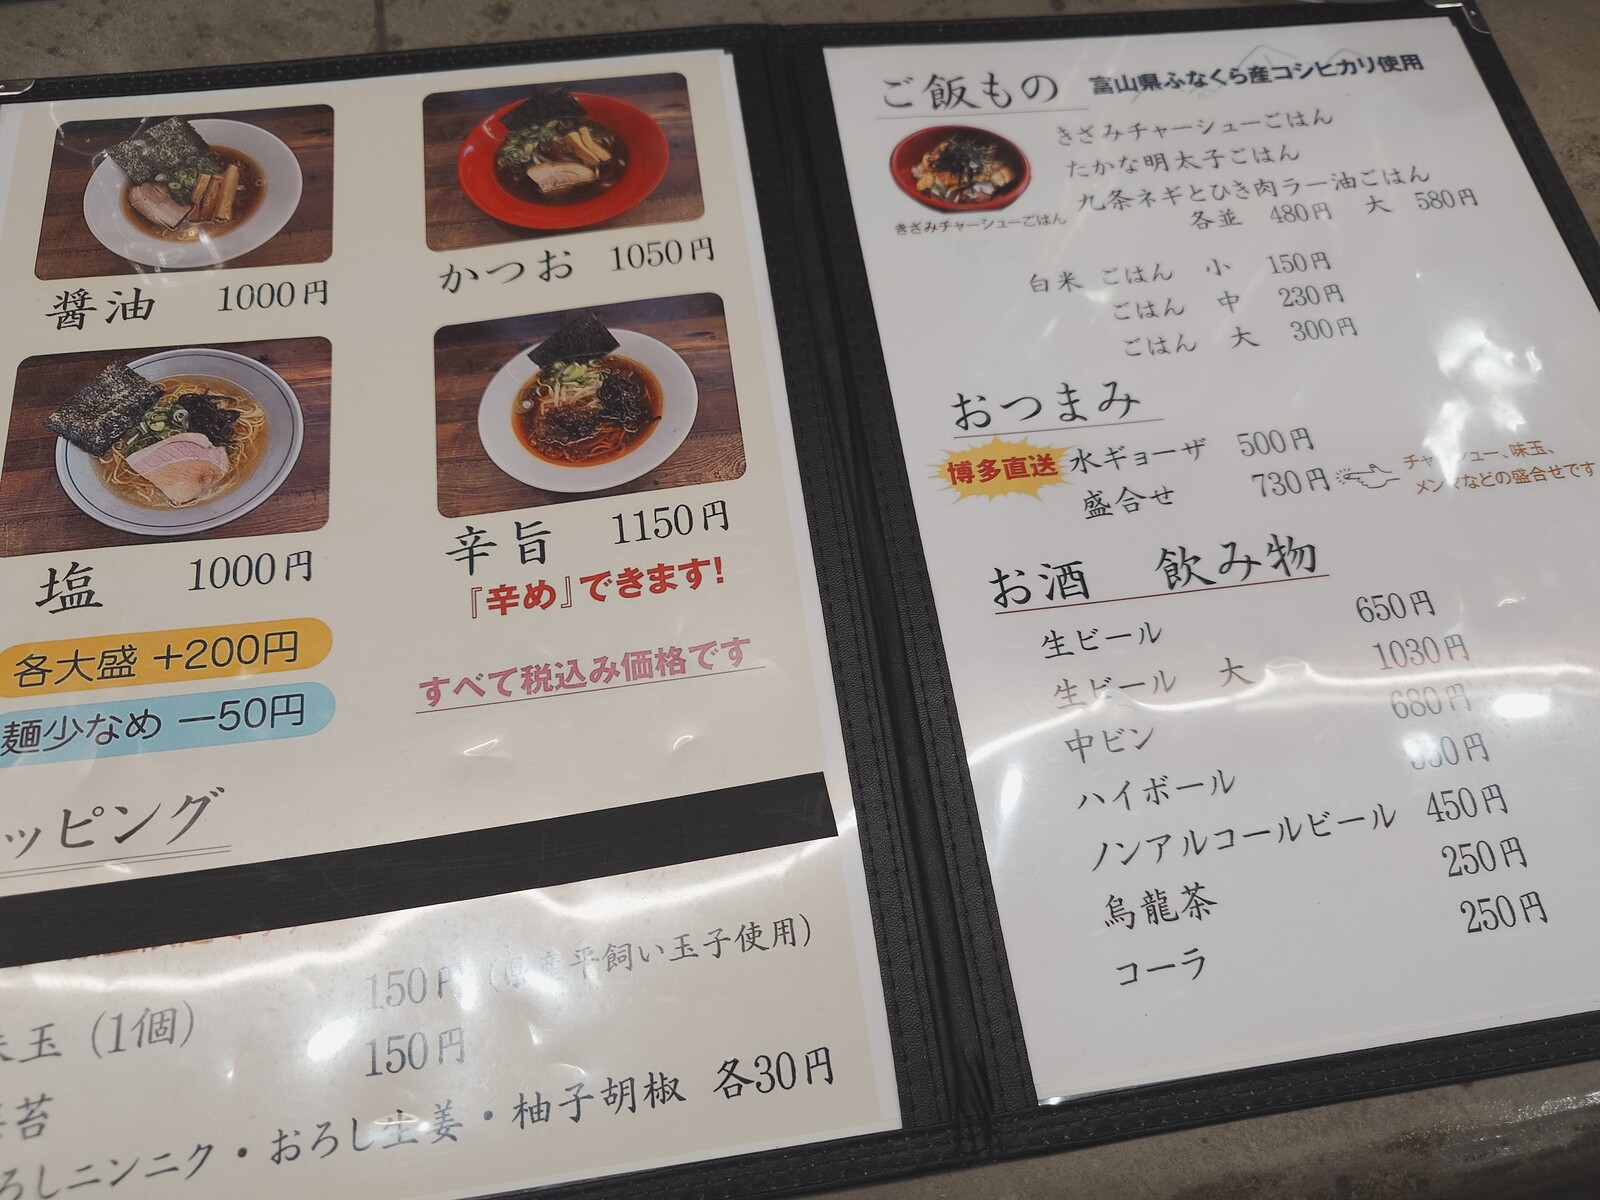 醤油 1000円
かつお 1050円
塩 1000円
辛旨 1150円
『辛め』できます!
各大盛 +200円
麺少なめ ー50円
すべて税込み価格です
ッピング
150円 (県産平飼い玉子使用)
玉 (1個)
150円
苔
ろしニンニク・おろし生姜・柚子胡椒 各30円
ご飯もの 富山県ふなくら産コシヒカリ使用
きざみチャーシューごはん
たかな明太子ごはん
九条ネギとひき肉ラー油ごはん
各並 480円 大 580円
きざみチャーシューごはん
白米 ごはん 小 150円
ごはん 中 230円
ごはん 大 300円
おつまみ
博多直送 水ギョーザ 500円
盛合せ 730円
チャーシュー、味玉、
メンマなどの盛合せです
お酒 飲み物
生ビール 650円
生ビール 大 1030円
中ビン 680円
ハイボール 50円
ノンアルコールビール 450円
烏龍茶 250円
コーラ 250円